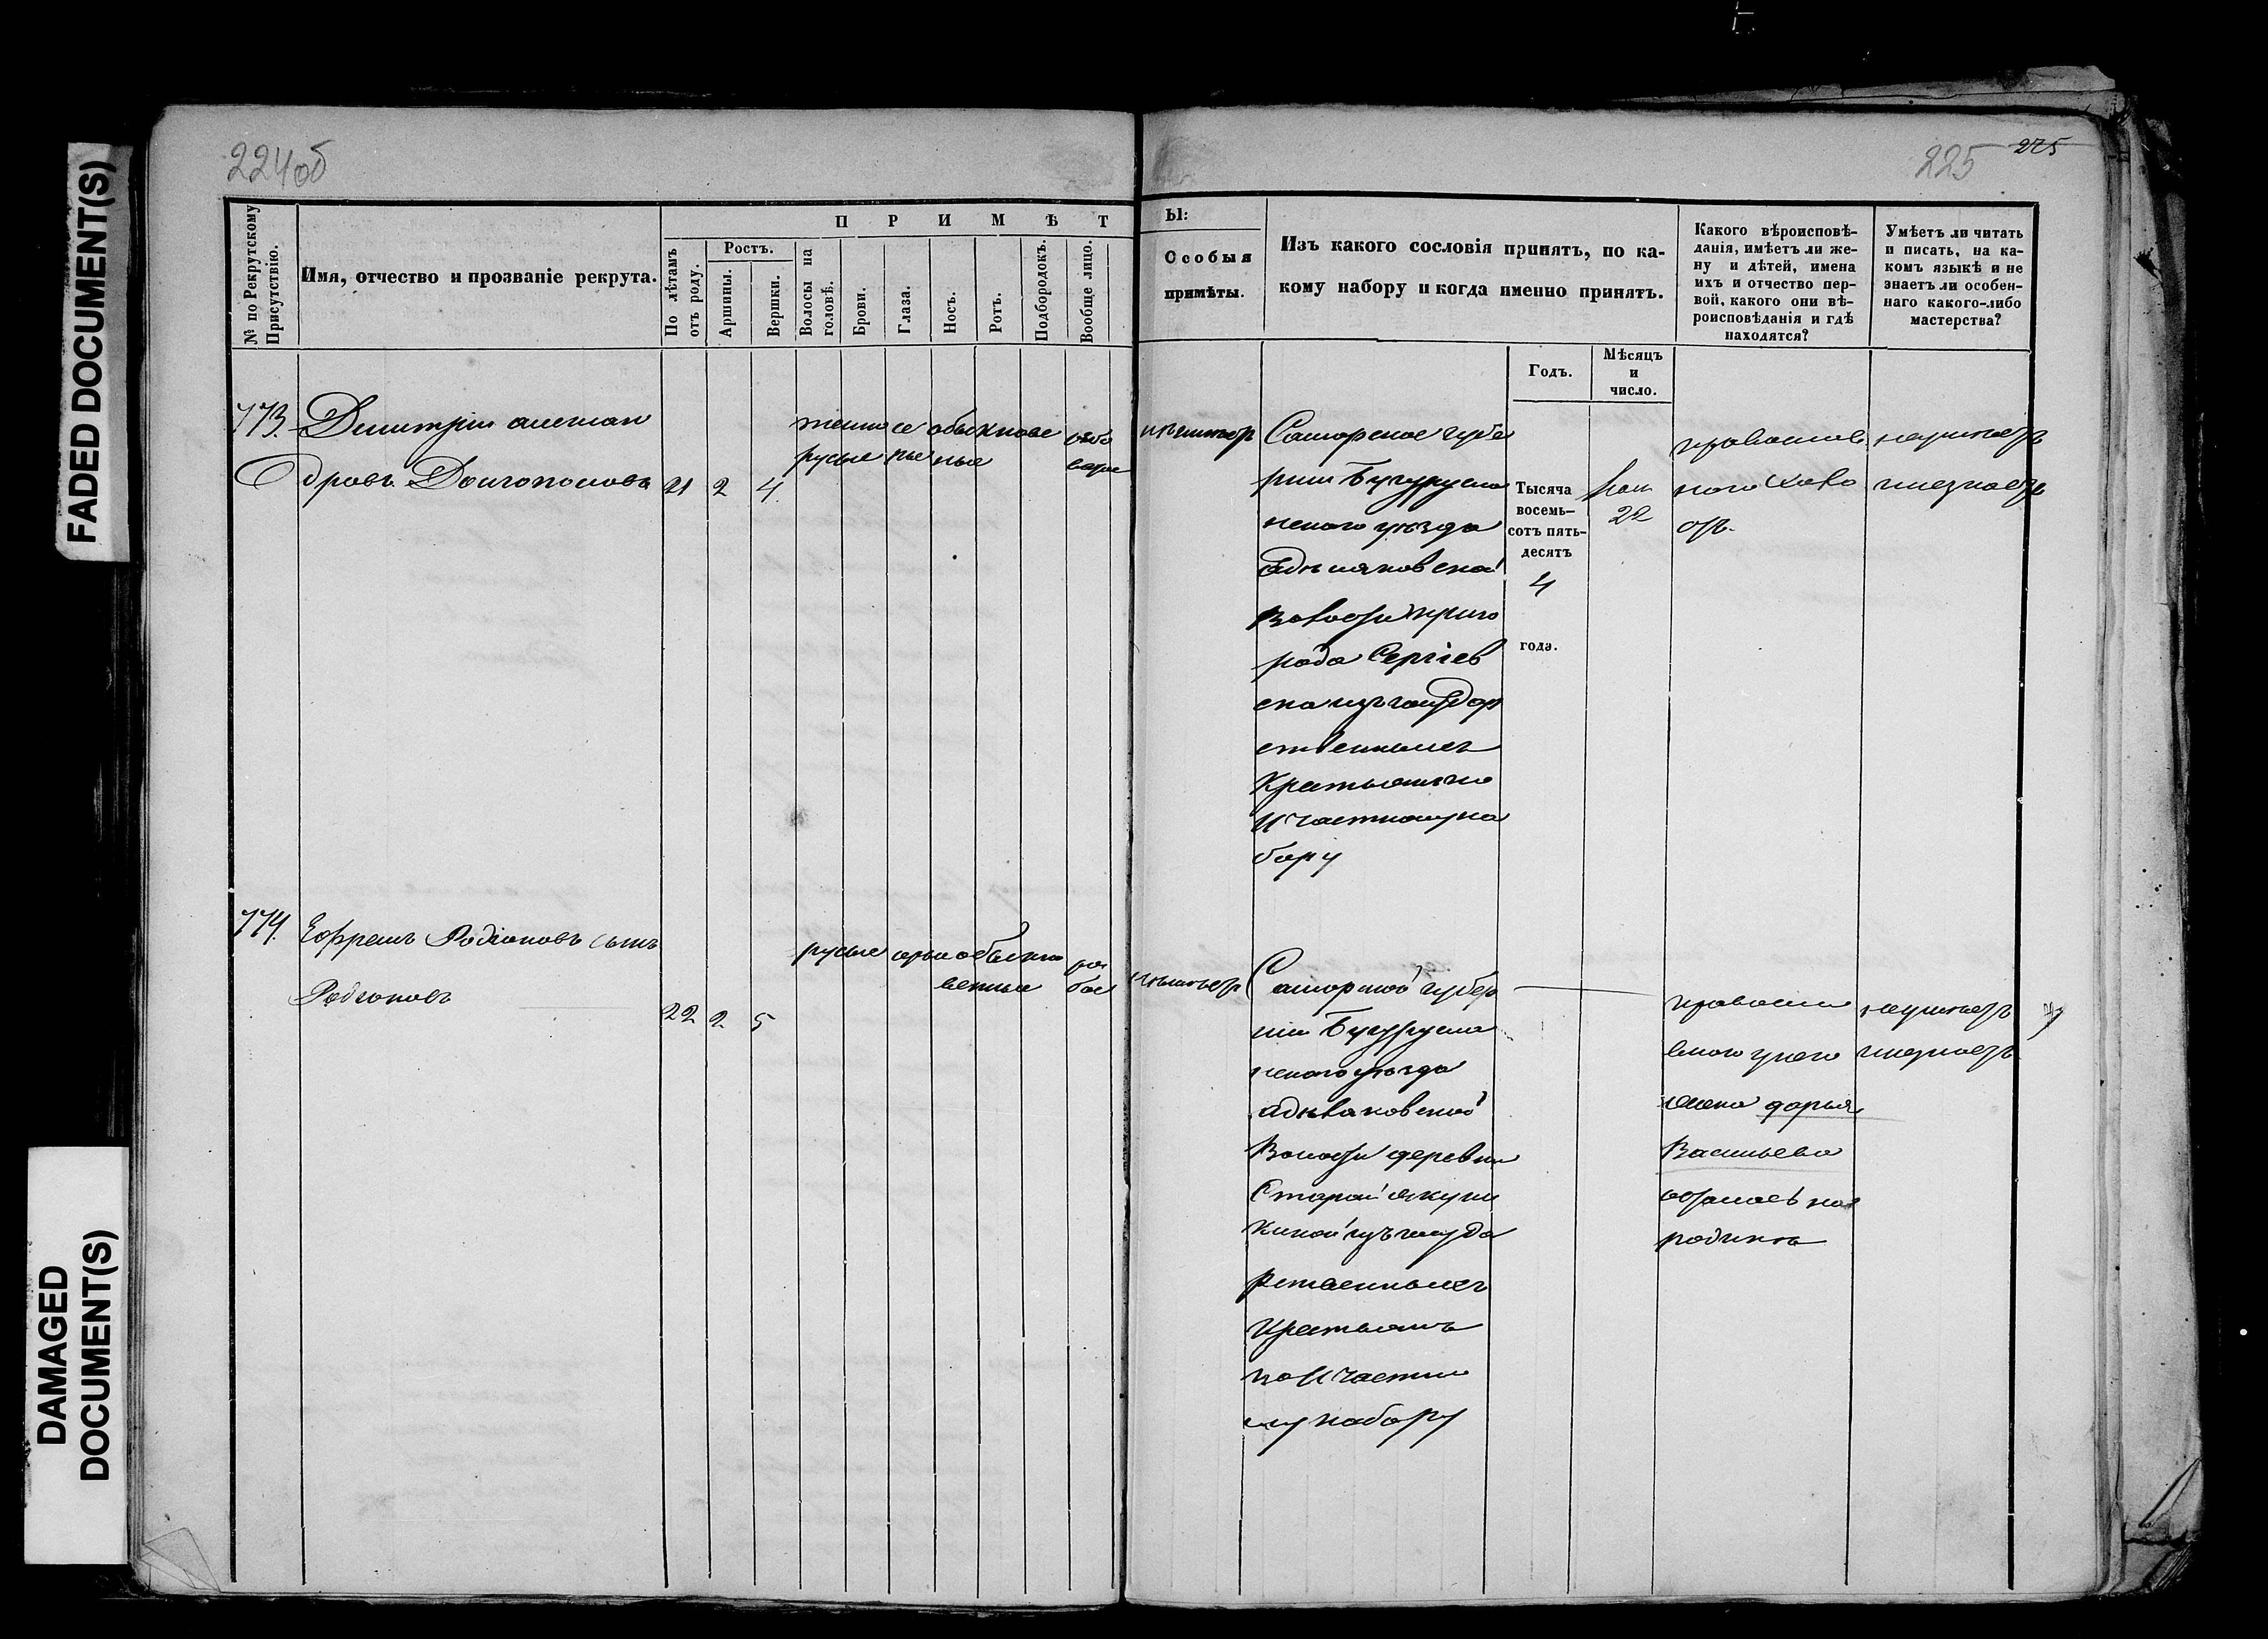 FADED DOCUMENT(S)
DAMAGED
DOCUMENT(S)
224 об
225
225
№ по Рекрутскому
Присутствію.
Имя, отчество и прозваніе рекрута.
П Р И М Ѣ Т
По лѣтамъ
отъ роду.
Ростъ.
Аршины.
Вершки.
Волосы на
головѣ.
Брови.
Глаза.
Носъ.
Ротъ.
Подбородокъ.
Вообще лицо.
Ы:
Особыя
примѣты.
Изъ какого сословія принятъ, по ка-
кому набору и когда именно принятъ.
Годъ.
Мѣсяцъ
и
число.
Какого вѣроисповѣ-
данія, имѣетъ ли же-
ну и дѣтей, имена
ихъ и отчество пер-
вой, какого они вѣ-
роисповѣданія и гдѣ
находятся?
Умѣетъ ли читать
и писать, на ка-
комъ языкѣ и не
знаетъ ли особен-
наго какого-либо
мастерства?
773.
Димитрій алексан
дровъ Долгополовъ
21 2 4
темно
русые
обыкнове
ные
неимѣетъ
Самарской губе
рніи Бугурусла
нскаго уѣзда
волости приго
рода Сергіев
ска изъ государ
ственныхъ
Крестьянъ по
И частному на
бору
Тысяча
восемь-
сотъ пять-
десятъ
4
года.
22
православ
наго холо
стъ.
неумѣетъ
инезнаетъ
774.
Ефремъ Родіоновъ сынъ
Родіоновъ
22 2 5
русые
обыкно
венные
ря
бое
неимѣетъ
Самарской губер
ніи Бугурусла
нскаго уѣзда
Волости деревни
Старой якуш
киной изъ госуда
рственныхъ
Крестьянъ
по И частно
му набору
правосла
внаго унего
жена дарья
Васильева
осталась на
родинѣ
неумѣетъ
инезнаетъ